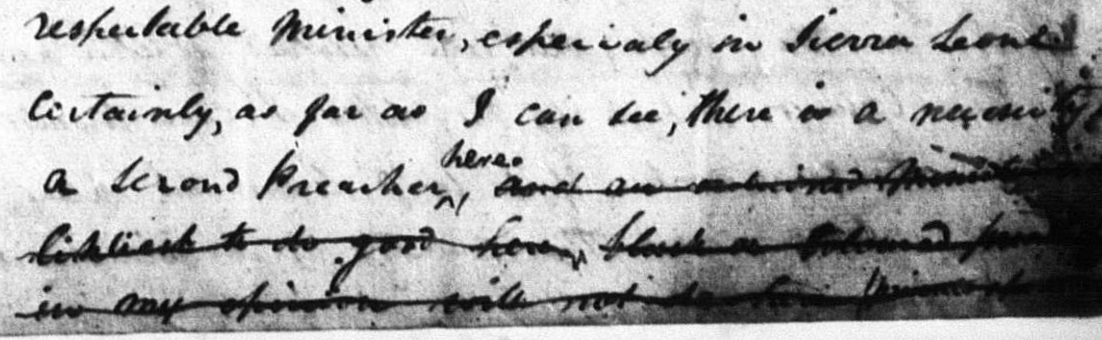 respectable Minister, especialy in Sierra Leone
Certainly, as far as I can see, there is a necessity
here.
a second Preacher, and an ordained
likliest to do good here, black or Coloured
in my opinion will not do